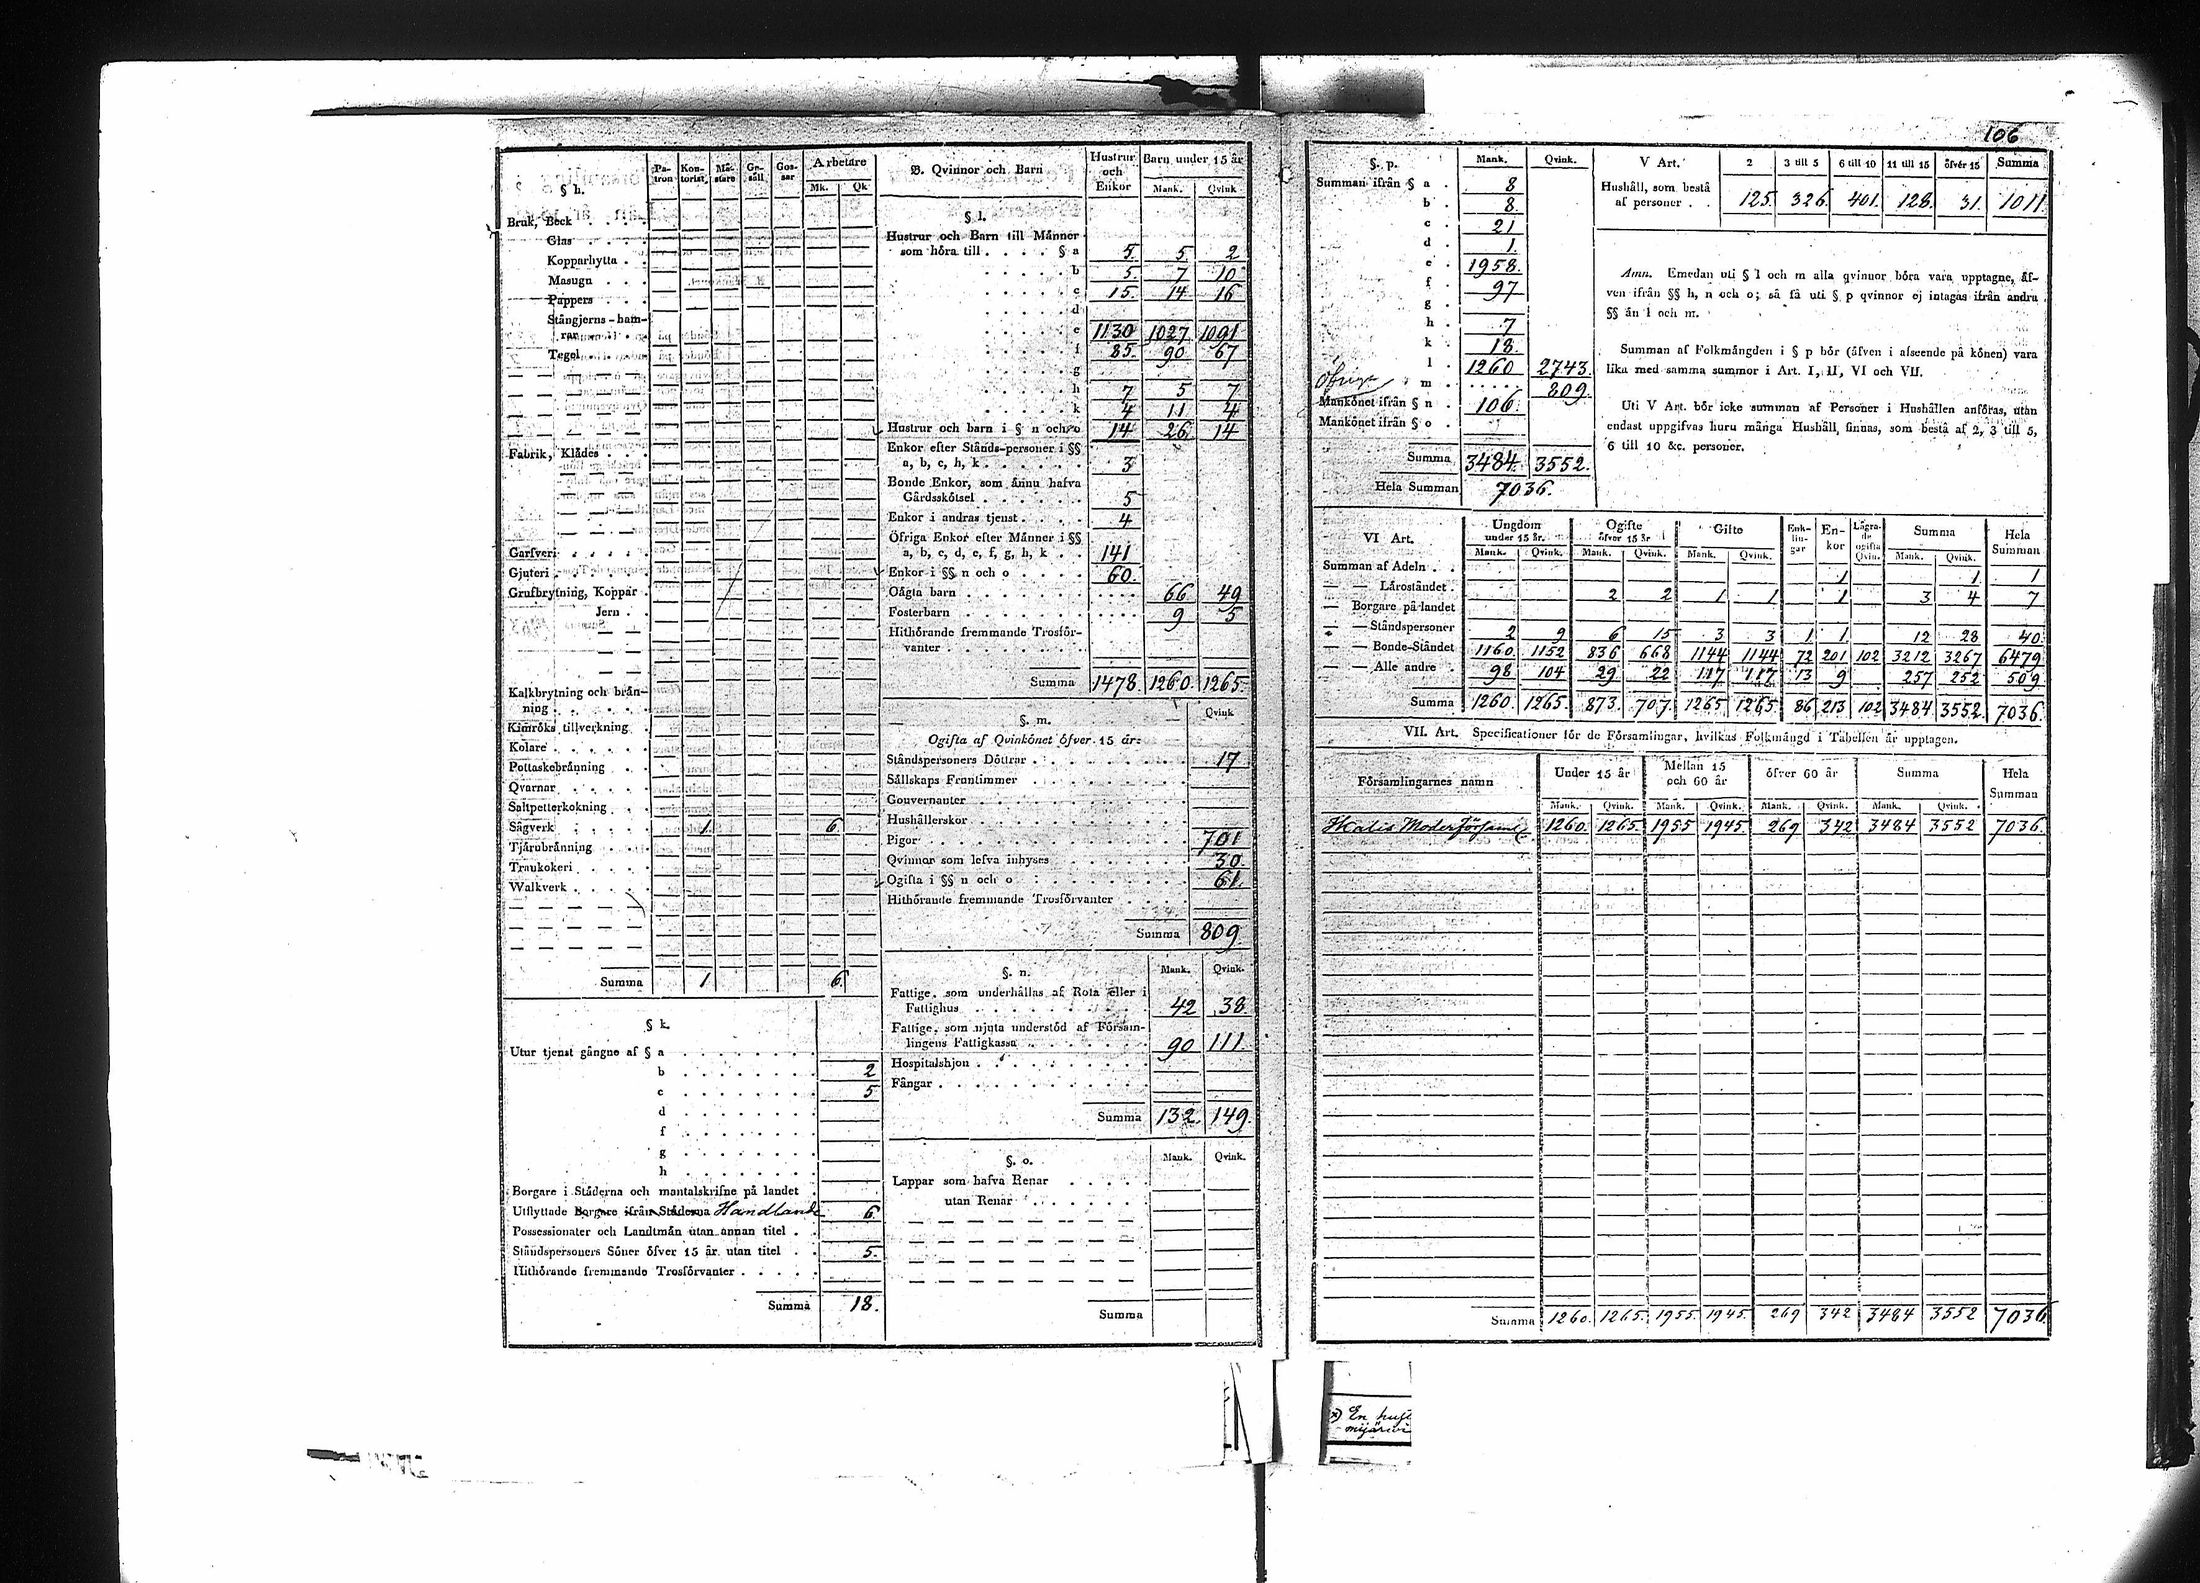 § h. Pa-tron Kon-torist. Mä-stare Ge-säll Gos-sar Arbetare Mk. Qk
Bruk, Beck . . . .
Glas . . . .
Kopparhytta . .
Masugn . . .
Pappers . . .
Stångjerns-ham-
rar . . .
Tegel . . . .
Fabrik, Klädes . . .
Garfveri . . . . .
Gjuteri . . . . . .
Grufbrytning, Koppar .
Jern . .
Kalkbrytning och brän-
ning . . . . . .
Kimröks tillverkning .
Kolare . . . . .
Pottaskebränning . .
Qvarnar . . . . .
Saltpetterkokning . .
Sågverk . . . . . 1. 6.
Tjärubränning . . .
Trankokeri . . . .
Walkverk . . . .
Summa 1 6.
§ k.
Utur tjenst gångne af § a . . . . . . .
b . . . . . . . 2
c . . . . . . . 5
d . . . . . . .
f . . . . . . .
g . . . . . . .
h . . . . . . .
Borgare i Städerna och mantalskrifne på landet .
Utflyttade Borgare ifrån Städerna Handlande 6.
Possessionater och Landtmän utan annan titel . .
Ståndspersoners Söner öfver 15 år utan titel . . 5.
Hithörande fremmande Trosförvanter . . . . .
Summa 18.
B. Qvinnor och Barn Hustrur och Enkor Barn under 15 år Mank. Qvink
§ l.
Hustrur och Barn till Männer
som höra till . . . . § a 5. 5. 2
b 5. 7 10
c 15. 14 16
d
e 1130 1027 1091
f 85. 90 67
g
h 7 5 7
k 4 11 4
Hustrur och barn i § n och o 14 26 14
Enkor efter Stånds-personer i §§
a, b, c, h, k . . . . . . 3
Bonde Enkor, som ännu hafva
Gårdsskötsel . . . . . . 5
Enkor i andras tjenst . . . . 4
Öfriga Enkor efter Männer i §§
a, b, c, d, e, f, g, h, k . . 141
Enkor i §§ n och o . . . . 60.
Oägta barn . . . . . . . 66 49
Fosterbarn . . . . . . . 9 5
Hithörande fremmande Trosför-
vanter . . . . . . . .
Summa 1478. 1260. 1265.
§. m. Qvink
Ogifta af Qvinkönet öfver 15 år:
Ståndspersoners Döttrar . . . . . . . . 17
Sällskaps Fruntimmer . . . . . . . . .
Gouvernanter . . . . . . . . . . .
Hushållerskor . . . . . . . . . . .
Pigor . . . . . . . . . . . . . 701
Qvinnor som lefva inhyses . . . . . . . 30.
Ogifta i §§ n och o . . . . . . . . . 61.
Hithörande fremmande Trosförvanter . . . .
Summa 809
§. n. Mank. Qvink.
Fattige, som underhållas af Rota eller i
Fattighus . . . . . . . . . . 42 38
Fattige, som njuta understöd af Försam-
lingens Fattigkassa . . . . . . . 90 111.
Hospitalshjon . . . . . . . . . .
Fångar . . . . . . . . . . . .
Summa 132. 149.
§. o. Mank. Qvink.
Lappar som hafva Renar . . . . .
utan Renar . . . . . .
Summa
106
§. p. Mank. Qvink.
Summan ifrån § a . 8
b . 8.
c . 21
d . 1.
e . 1958.
f . 97
g .
h . 7
k . 18.
l . 1260 2743.
m . . . . . . 809.
Öfriga
Mankönet ifrån § n . 106.
Mankönet ifrån § o .
Summa 3484. 3552.
Hela Summan 7036.
V Art. 2 3 till 5 6 till 10 11 till 15 öfver 15 Summa
Hushåll, som bestå
af personer . . 125. 326. 401. 128. 31. 1011.
Anm. Emedan uti § l och m alla qvinnor böra vara upptagne, äf-
ven ifrån §§ h, n och o; så få uti § p qvinnor ej intagas ifrån andra
§§ än l och m.
Summan af Folkmängden i § p bör (äfven i afseende på könen) vara
lika med samma summor i Art. I, II, VI och VII.
Uti V Art. bör icke summan af Personer i Hushållen anföras, utan
endast uppgifvas huru många Hushåll, finnas, som bestå af 2, 3 till 5,
6 till 10 &c. personer.
VI Art. Ungdom under 15 år. Ogifte öfver 15 år Gifte Enk-lin-gar En-kor Lägra-de ogifta Qvin. Summa Hela Summan
Mank. Qvink. Mank. Qvink. Mank. Qvink. Mank. Qvink.
Summan af Adeln . . 1 1 1
— — Läroståndet . 2 2 1 1 1 3 4 7
— Borgare på landet
— — Ståndspersoner 2 9 6 15 3 3 1 1 12 28 40
— — Bonde-Ståndet 1160. 1152 836 668 1144 1144 72 201 102 3212 3267 6479
— — Alle andre . 98 104 29 22 117 117 13 9 257 252 509
Summa 1260. 1265. 873. 707. 1265 1265. 86 213 102 3484 3552. 7036.
VII. Art. Specificationer för de Församlingar, hvilkas Folkmängd i Tabellen är upptagen.
Församlingarnes namn Under 15 år Mellan 15 och 60 år öfver 60 år Summa Hela Summan
Mank. Qvink. Mank. Qvink. Mank. Qvink. Mank. Qvink.
Moderförsaml. 1260. 1265. 1955 1945. 269 342 3484 3552 7036.
Summa 1260. 1265. 1955. 1945. 269 342 3484 3552 7036.
*) En